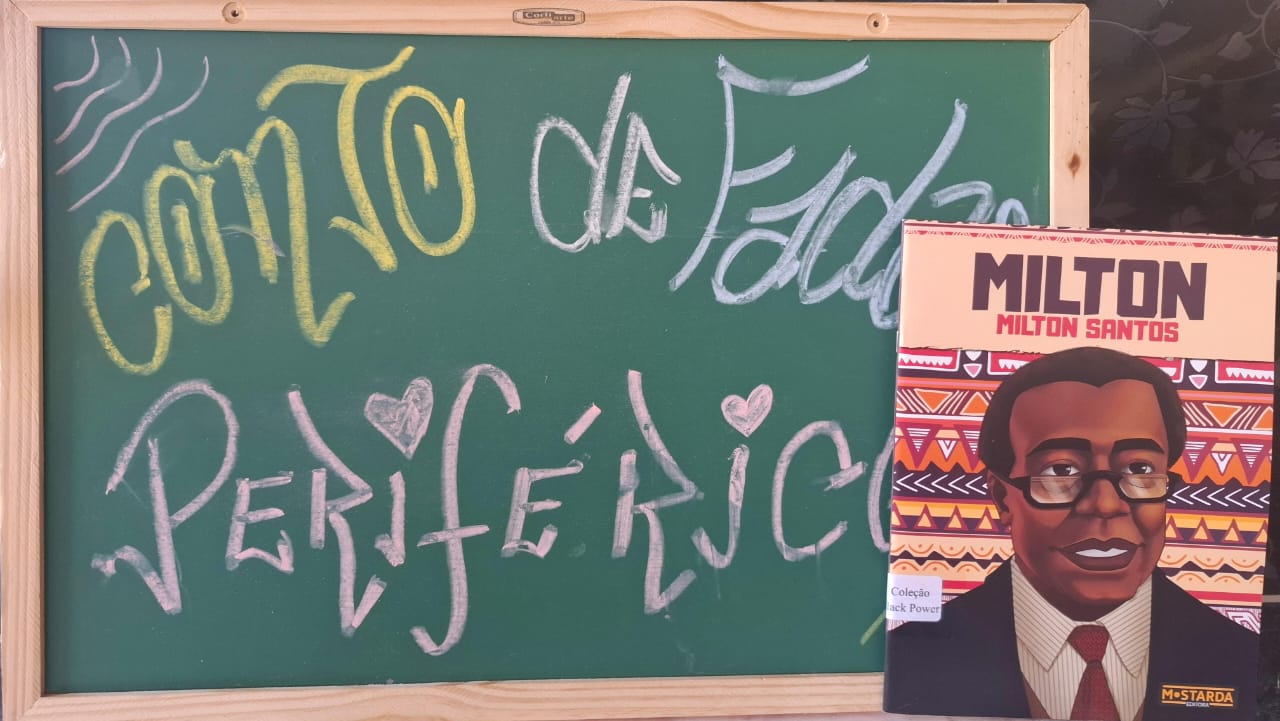 CONTO de Fadas
PERIFÉRICO
MILTON
MILTON SANTOS
Coleção
lack Power
MOSTARDA
EDITORA